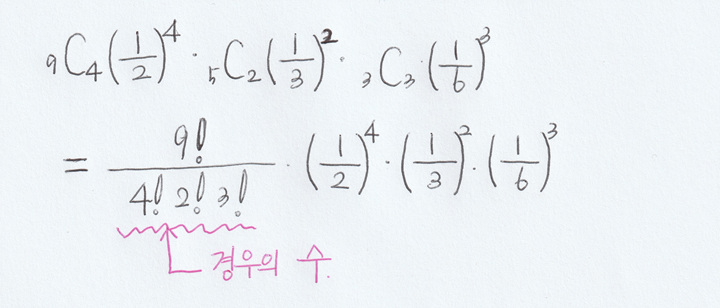 ₉C₄(1/2)⁴ · ₅C₂(1/3)² · ₃C₃ · (1/6)³
= 9!/(4! 2! 3!) · (1/2)⁴ · (1/3)² · (1/6)³
경우의 수.